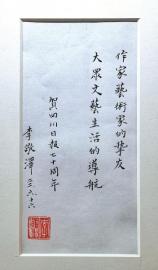 作家藝術家的挚友
大眾文藝生活的導航
賀四川日报七十周年
李敬澤